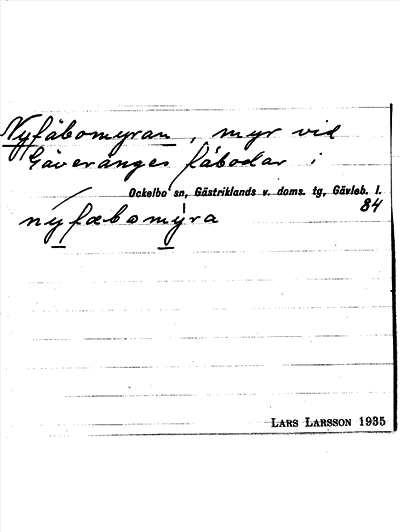 Nyfäbomyran, myr vid
Gäveränges fäbodar i
Ockelbo sn, Gästriklands v. doms. tg, Gävleb. l.
84
nýfæbomýra
LARS LARSSON 1935